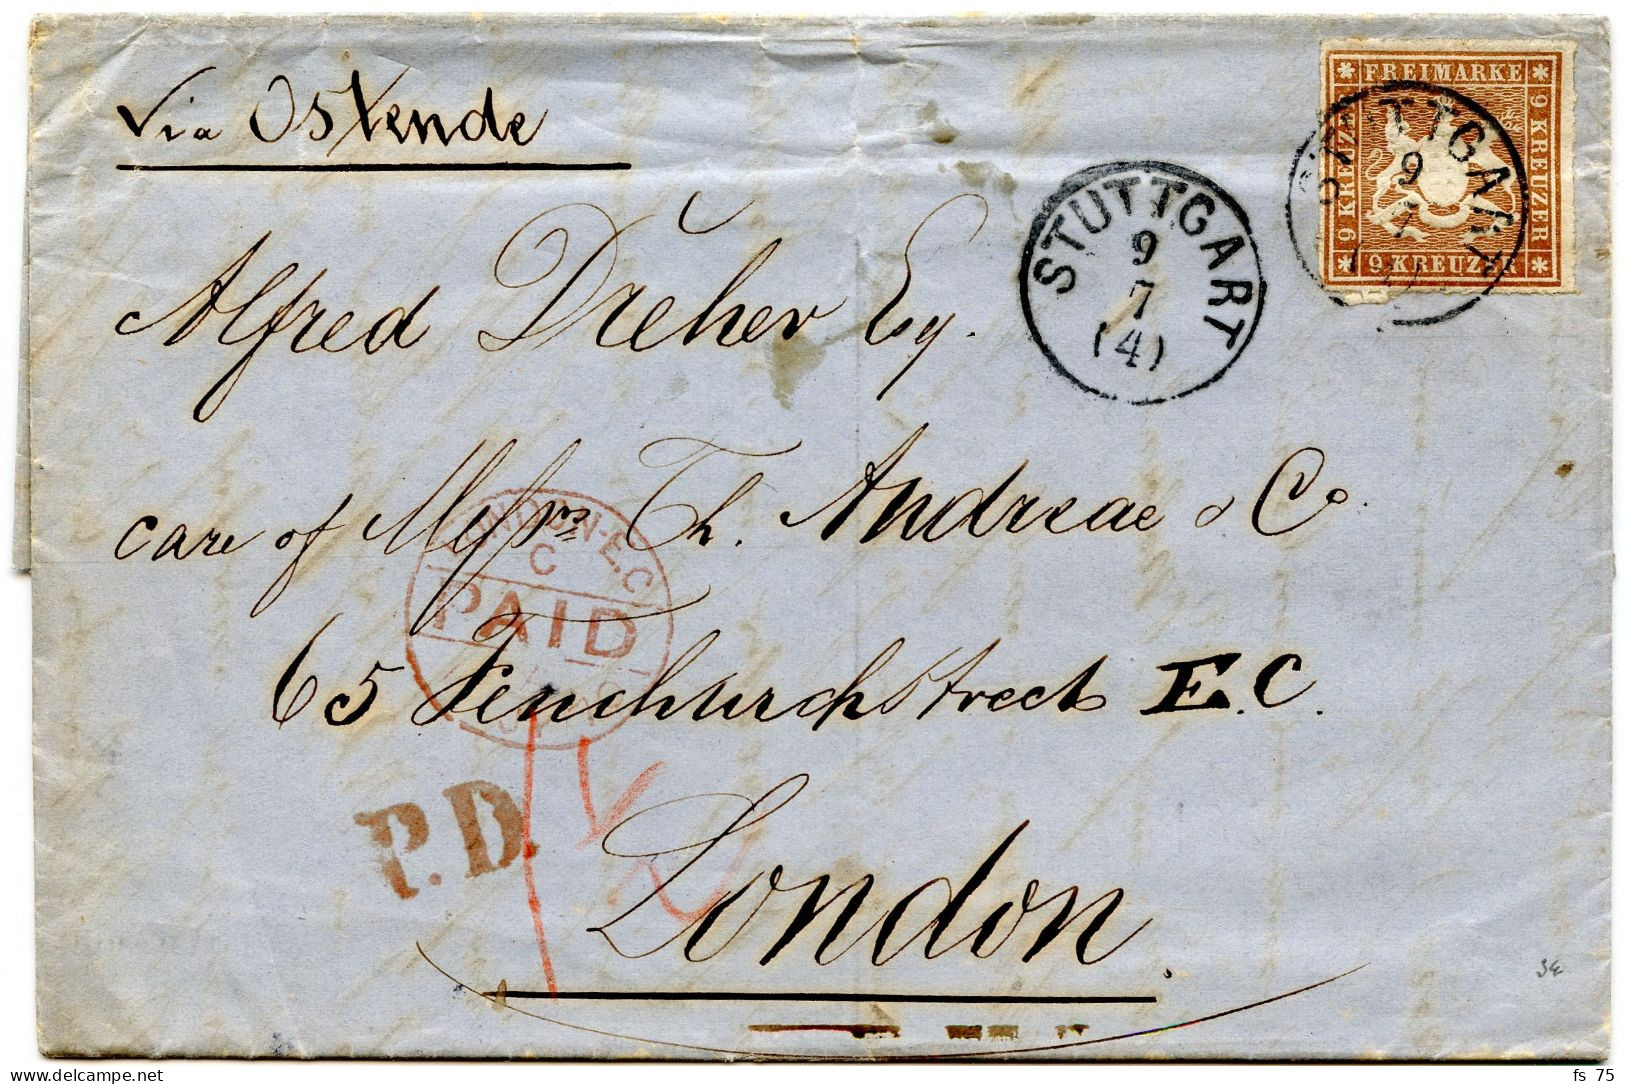 Via Ostende
FREIMARKE
9 KREUZER
9 KREUZER
9 KREUZER
STUTTGART
9
7
STUTTGART
9
7
(4)
Alfred Dreher Esq.
care of Messrs Th. Andreae & Co.
LONDON-E.C
C
PAID
65 Fenchurchstreet E.C.
P.D.
London.
www.delcampe.net
fs_75